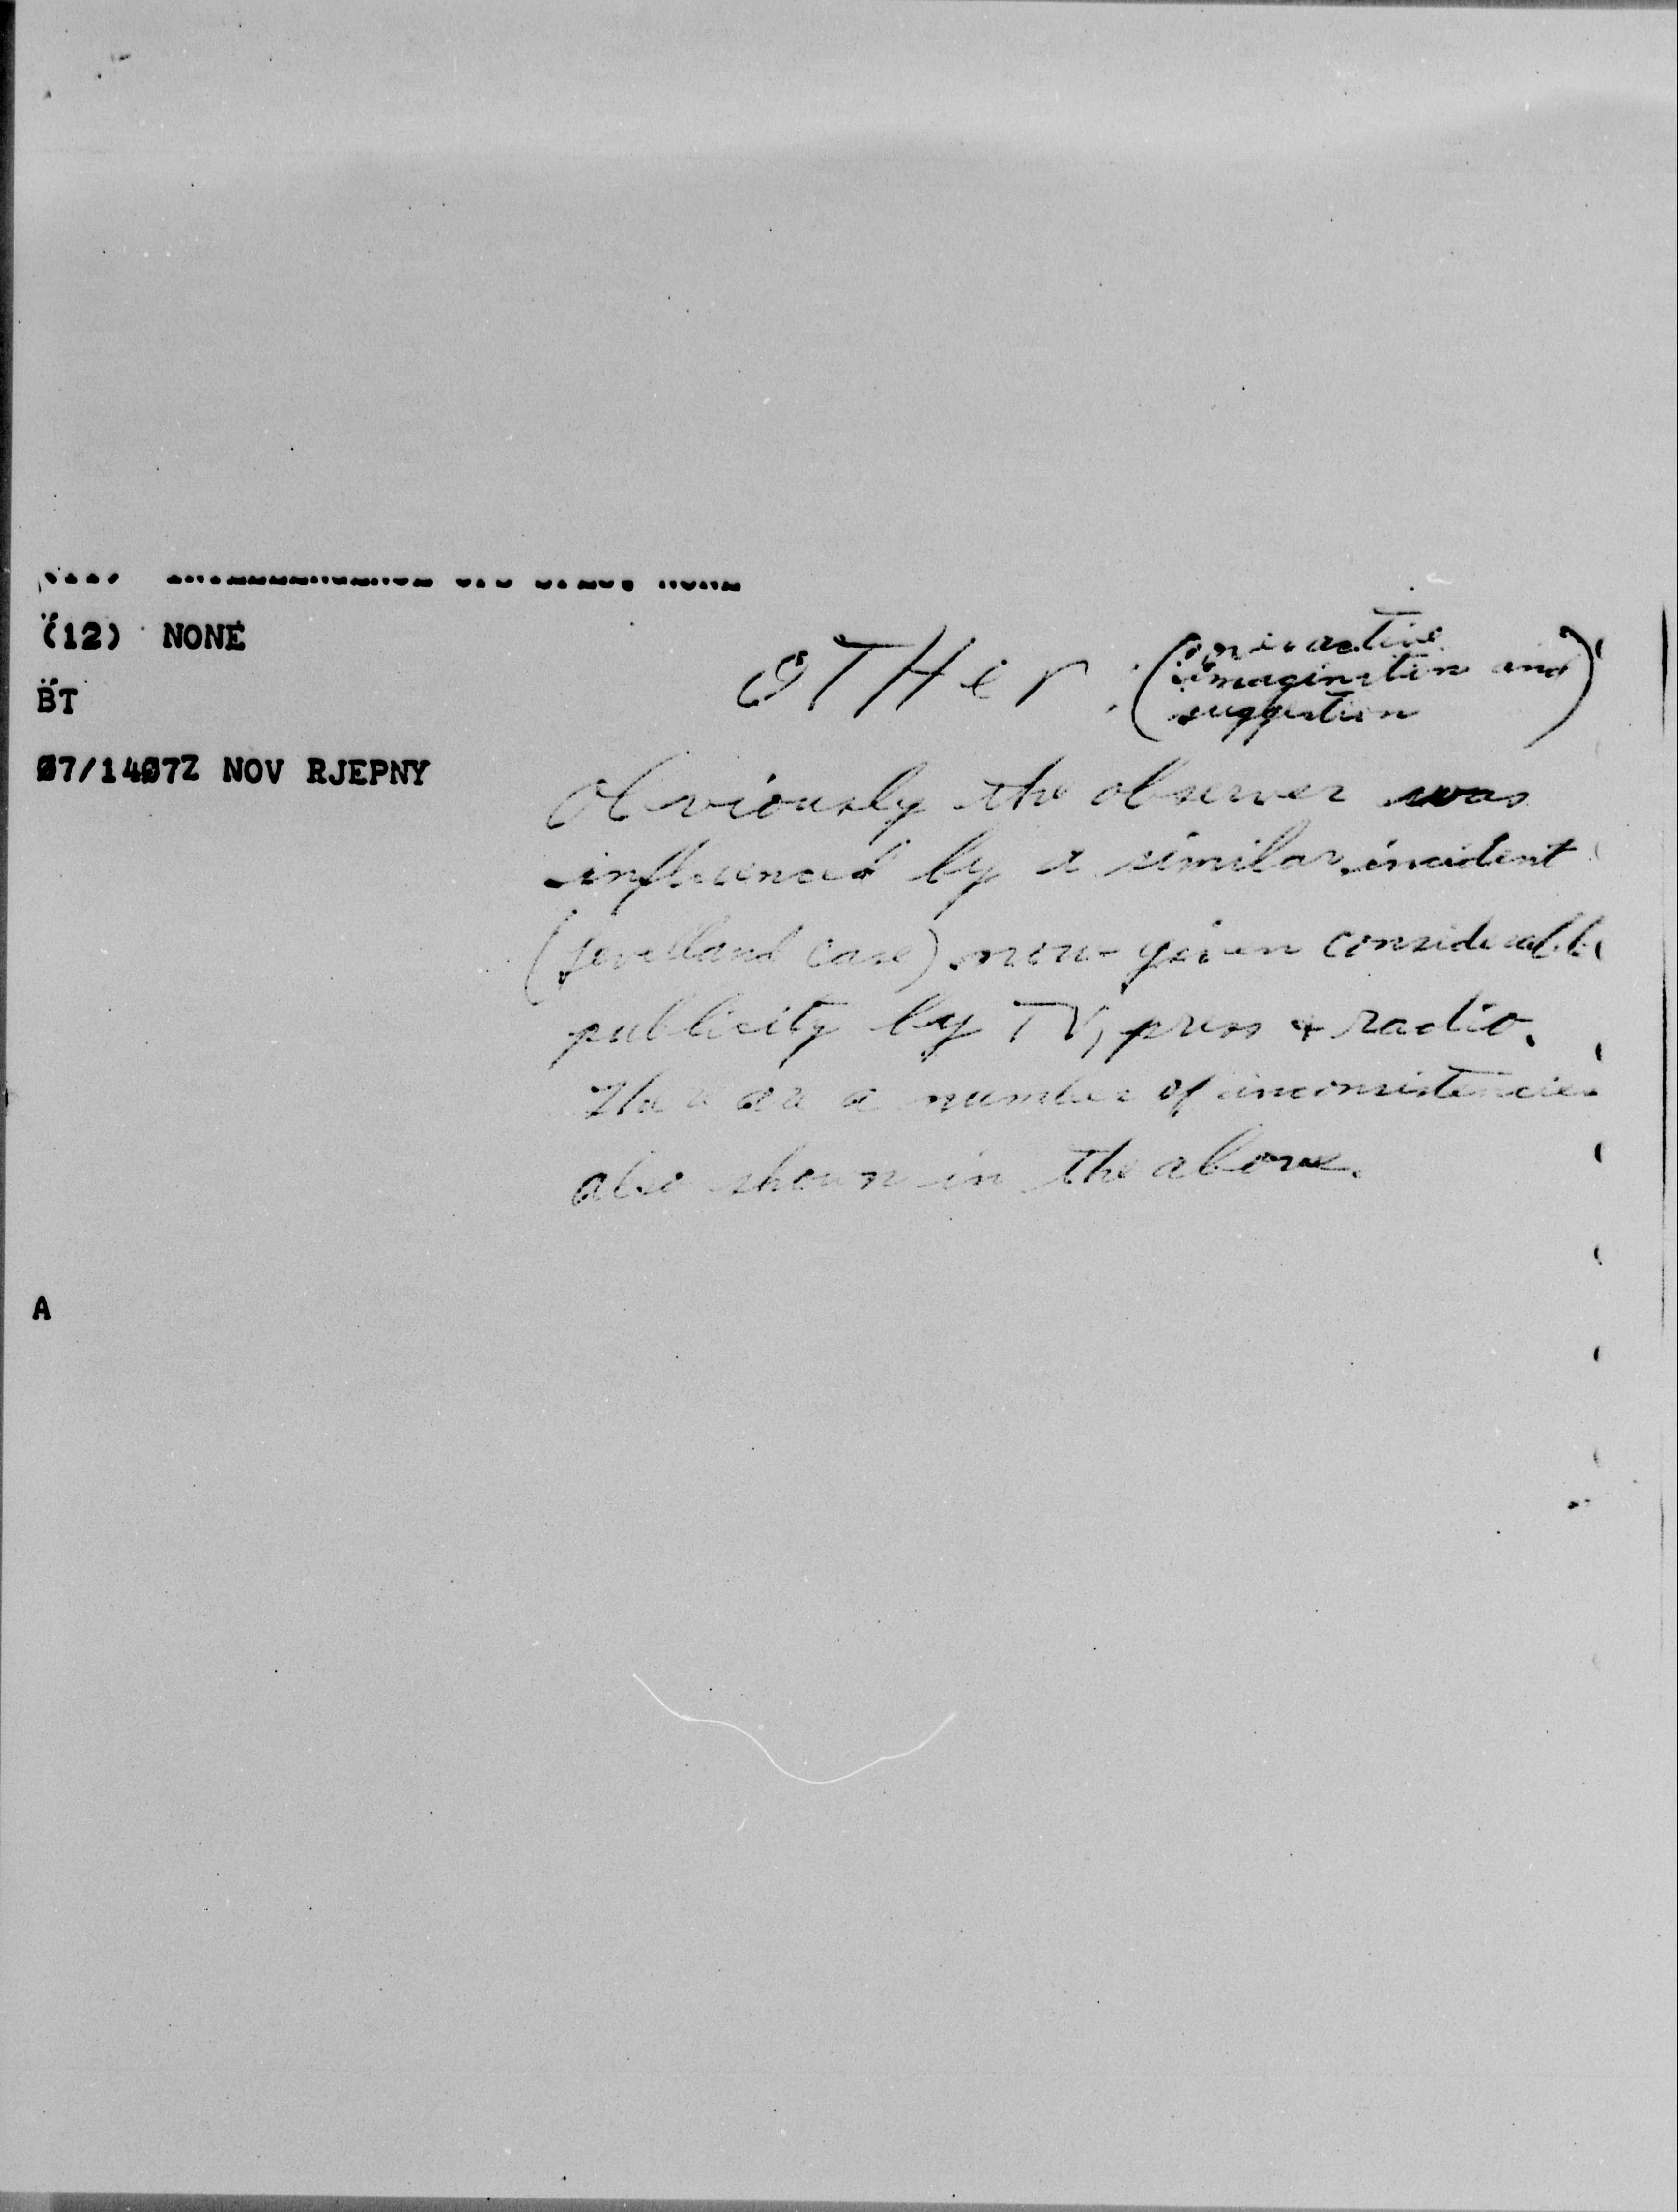 (12) NONE
BT
Ø7/14Ø7Z NOV RJEPNY
OTHer : (overactive
imagination and
suggestion)
Obviously the observer was
influenced by a similar incident
(Levelland case) now given considerable
publicity by TV, press & radio.
There are a number of inconsistencies
also shown in the above.
A